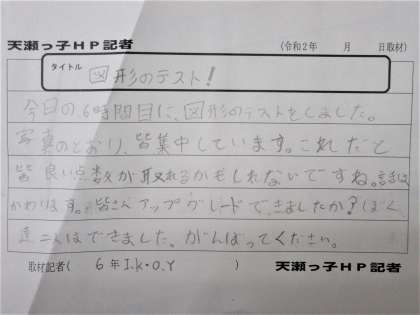 天瀬っ子HP記者 (令和2年 月 日取材)
タイトル 図形のテスト!
今日の6時間目に、図形のテストをしました。
写真のとおり、皆集中しています。これだと
皆良い点数が取れるかもしれないですね。話は
かわります。皆さんアップグレードできましたか?ぼく
達二人はできました。がんばってください。
取材記者( 6年I.k・O.Y ) 天瀬っ子HP記者